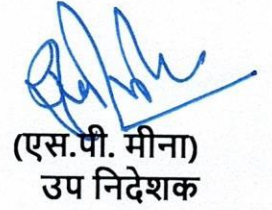 (एस.पी. मीना)
उप निदेशक